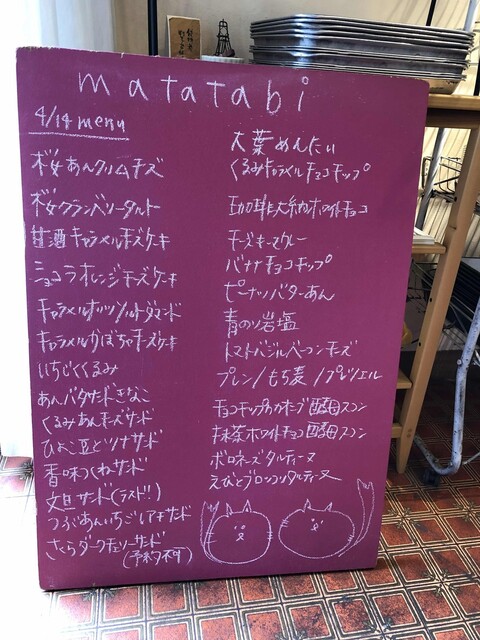 matatabi
4/14 menu
桜あんクリームチーズ
桜クランベリータルト
甘酒キャラメルチーズケーキ
ショコラオレンジチーズケーキ
キャラメルナッツ
キャラメルかぼちゃチーズケーキ
いちじくくるみ
あんバタサンドきなこ
くるみあんチーズサンド
ひよこ豆とツナサンド
香味つくねサンド
文旦サンド(ラスト!!)
つぶあんいちごレアチサンド
さくらダークチェリーサンド
(予約不可)
大葉めんたい
くるみキャラメルチョコチップ
珈琲大納言ホワイトチョコ
チーズキーマカレー
バナナチョコチップ
ピーナッツバターあん
青のり岩塩
トマトバジルベーコンチーズ
プレーン/もち麦/プレツェル
チョコチップカカオニブ酵母スコン
抹茶ホワイトチョコ酵母スコン
ボロネーズタルティーヌ
えびとブロッコリタルティーヌ